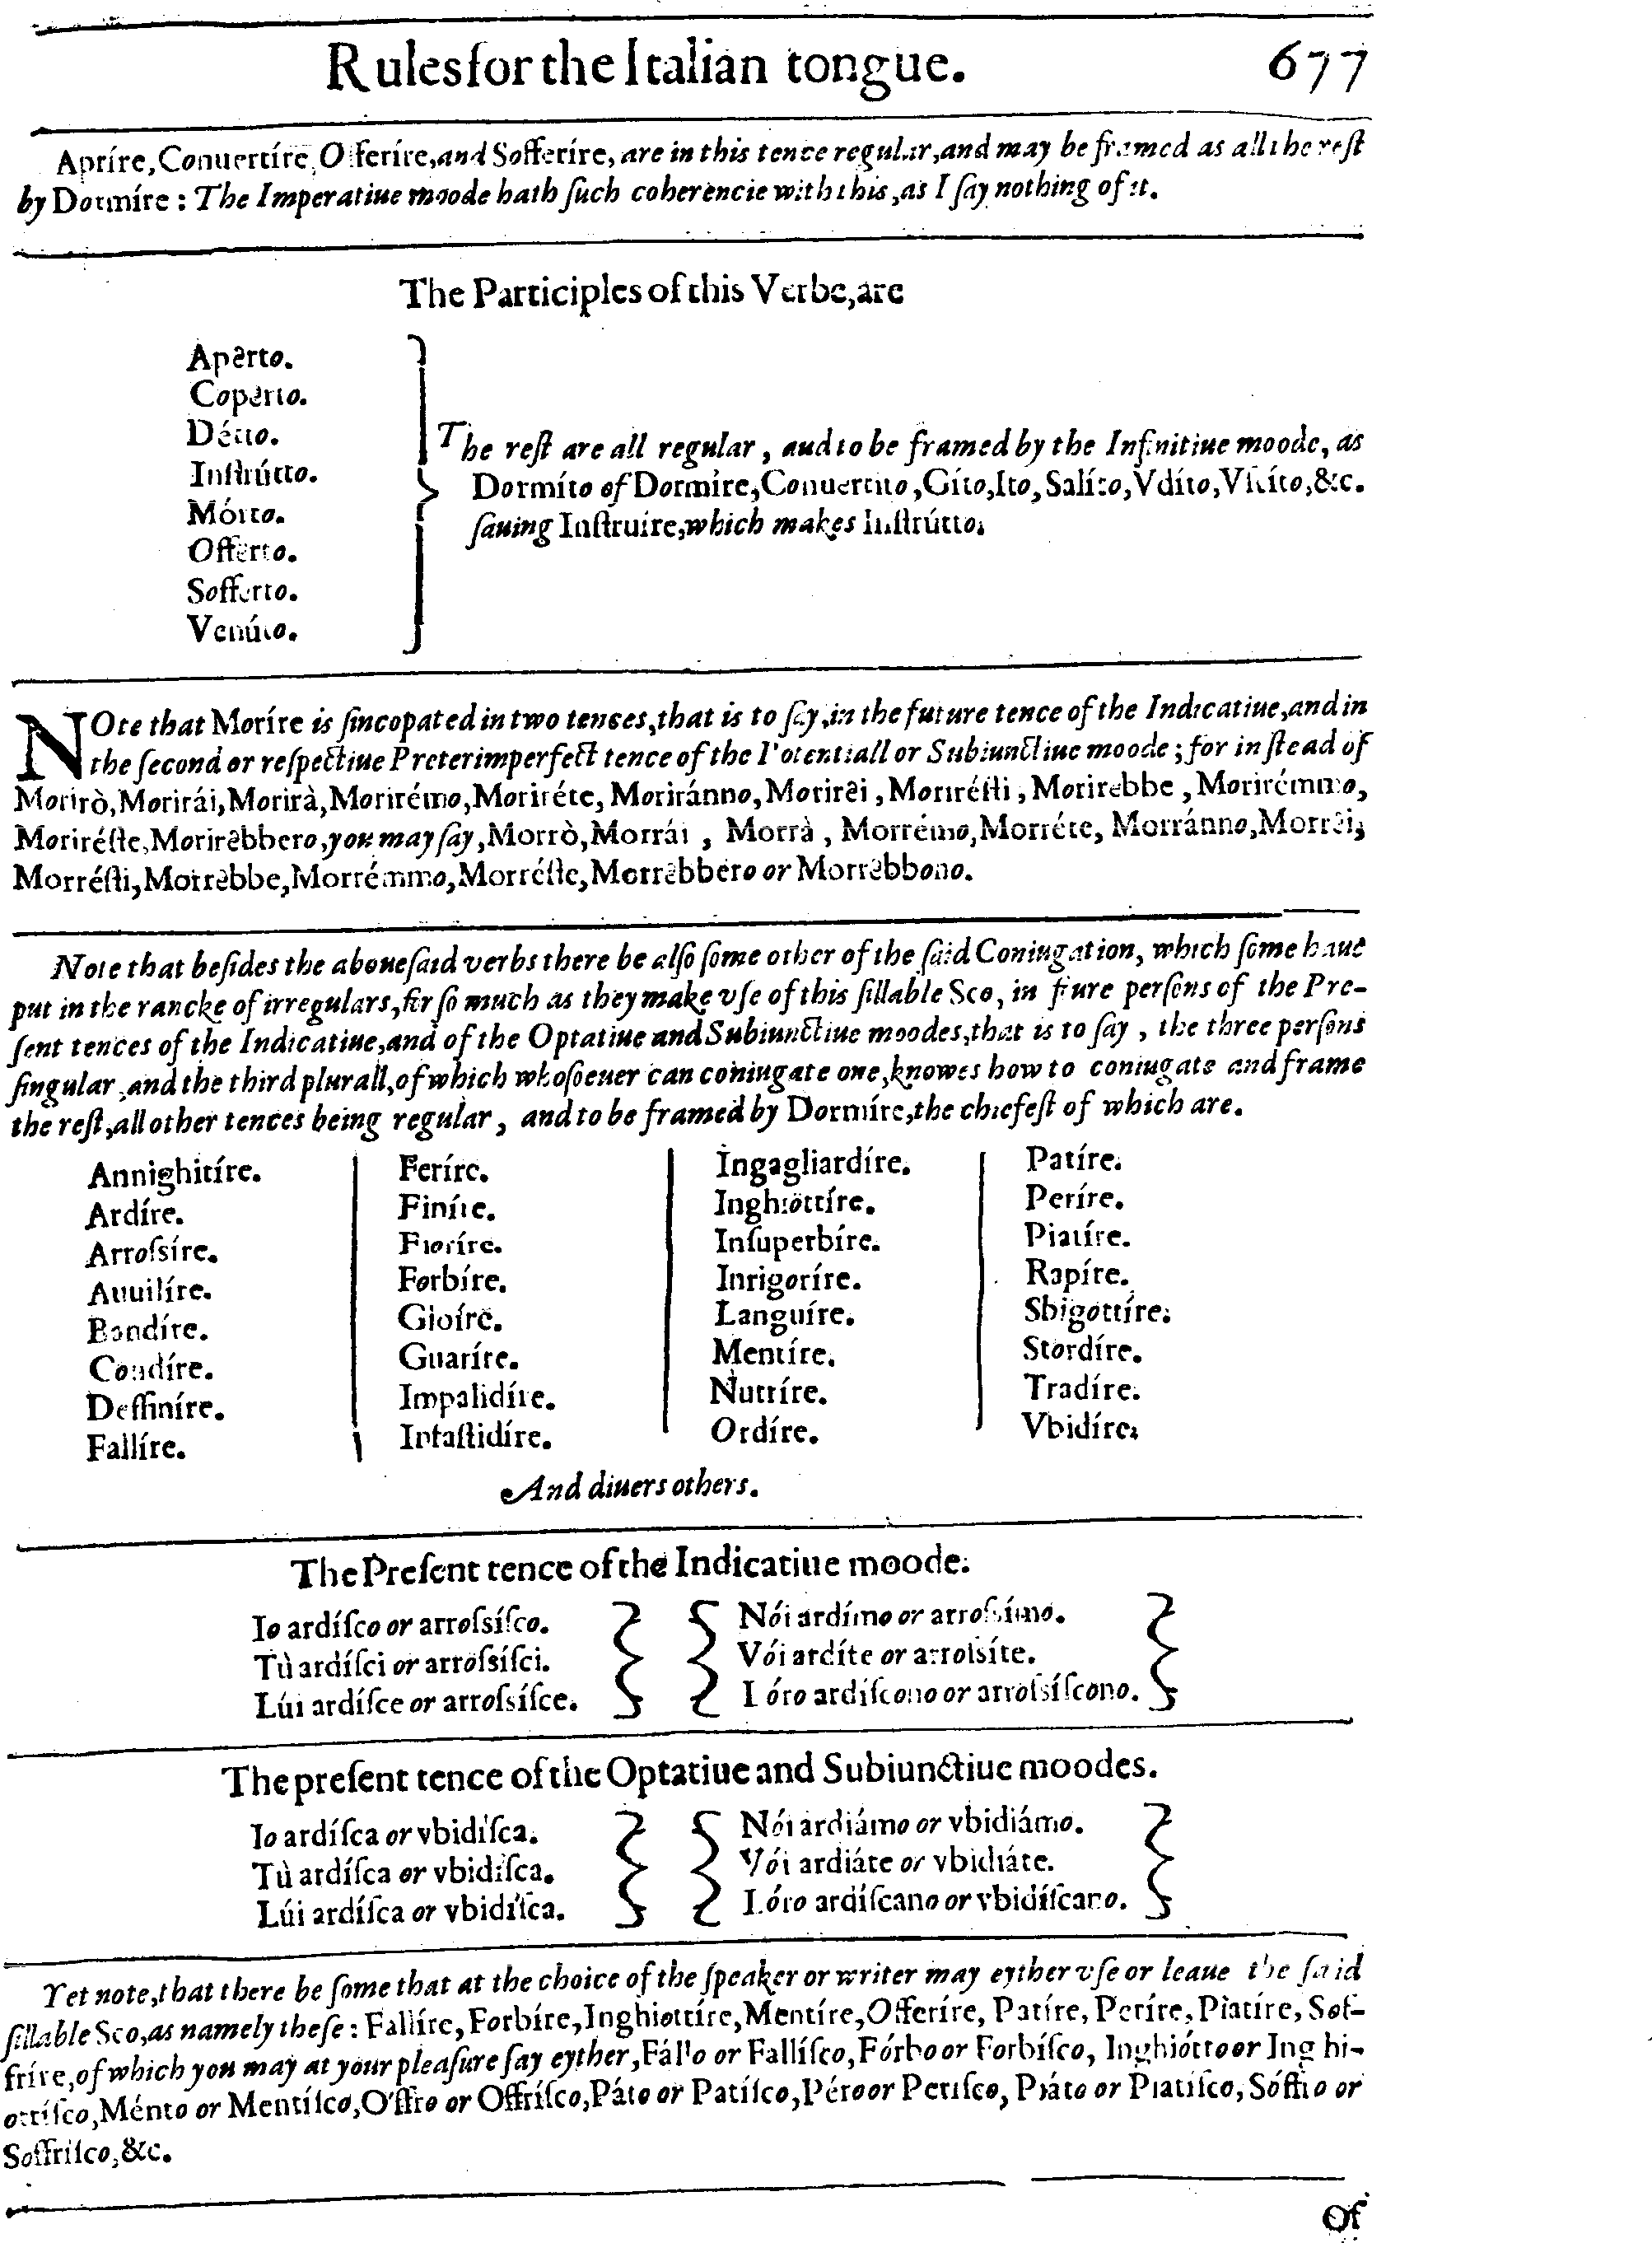 Rules for the Italian tongue. 677
Apríre, Conuertíre, Offeríre, and Sofferíre, are in this tence regular, and may be framed as all the rest
by Dormíre: The Imperatiue moode hath such coherencie with this, as I say nothing of it.
The Participles of this Verbe, are
Apêrto.
Copêrto.
Détto.
Instrútto.
Mórto.
Offêrto.
Sofferto.
Venúto.
The rest are all regular, aud to be framed by the Infinitiue moode, as
Dormíto of Dormíre, Conuertito, Gíto, Ito, Salíto, Vdíto, Vscíto, &c.
sauing Instruire, which makes Instrútto.
NOte that Moríre is sincopated in two tences, that is to say, in the future tence of the Indicatiue, and in
the second or respectiue Preterimperfect tence of the Potentiall or Subiunctiue moode; for in stead of
Morirò, Morirái, Morirà, Morirémo, Moriréte, Moriránno, Morirêi, Morirésti, Morirebbe, Morirémmo,
Moriréste, Morirêbbero, you may say, Morrò, Morrái, Morrà, Morrémo, Morréte, Morránno, Morrêi,
Morrésti, Morrêbbe, Morrémmo, Morréste, Morrêbbero or Morrêbbono.
Note that besides the abouesaid verbs there be also some other of the said Coniugation, which some haue
put in the rancke of irregulars, for so much as they make vse of this sillable Sco, in foure persons of the Pre-
sent tences of the Indicatiue, and of the Optatiue and Subiunctiue moodes, that is to say, the three persons
singular, and the third plurall, of which whosoeuer can coniugate one, knowes how to coniugate and frame
the rest, all other tences being regular, and to be framed by Dormíre, the chiefest of which are.
Annighitíre.
Ardíre.
Arrossíre.
Auuilíre.
Bandíre.
Condíre.
Deffiníre.
Fallíre.
Feríre.
Finíre.
Fioríre.
Forbíre.
Gioíre.
Guaríre.
Impalidíre.
Infastidíre.
Ingagliardíre.
Inghiottíre.
Insuperbíre.
Inrigoríre.
Languíre.
Mentíre.
Nutríre.
Ordíre.
Patíre.
Períre.
Piatíre.
Rapíre.
Sbigottíre.
Stordíre.
Tradíre.
Vbidíre.
And diuers others.
The Present tence of the Indicatiue moode.
Io ardísco or arrossísco.
Tù ardísci or arrossísci.
Lúi ardísce or arrossísce.
Nói ardímo or arrossímo.
Vói ardíte or arrossíte.
Lóro ardíscono or arrossíscono.
The present tence of the Optatiue and Subiunctiue moodes.
Io ardísca or vbidísca.
Tù ardísca or vbidísca.
Lúi ardísca or vbidísca.
Nói ardiámo or vbidiámo.
Vói ardiáte or vbidiáte.
Lóro ardíscano or vbidíscano.
Yet note, that there be some that at the choice of the speaker or writer may eyther vse or leaue the said
sillable Sco, as namely these: Fallíre, Forbíre, Inghiottíre, Mentíre, Offeríre, Patíre, Períre, Piatíre, Sof-
fríre, of which you may at your pleasure say eyther, Fállo or Fallísco, Fórbo or Forbísco, Inghiótto or Inghi-
ottísco, Ménto or Mentísco, O'ffro or Offrísco, Páto or Patísco, Péro or Perisco, Piáto or Piatisco, Sóffro or
Soffrisco, &c.
Of